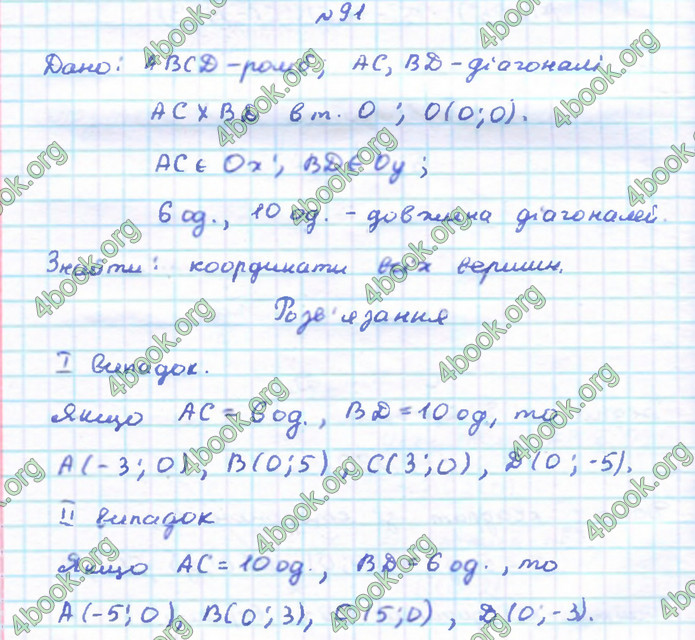 №91
Дано: ABCD - ромб, AC, BD - діагоналі
AC X BD в т. O ; O(0;0).
AC ∈ Ox ; BD ∈ Oy ;
6 од., 10 од. - довжина діагоналей.
Знайти: координати всіх вершин.
Розв'язання
I випадок.
Якщо AC = 6 од., BD = 10 од, то
A(-3;0), B(0;5), C(3;0), D(0;-5).
II випадок
Якщо AC = 10 од., BD = 6 од., то
A(-5;0), B(0;3), C(5;0), D(0;-3).
4book.org